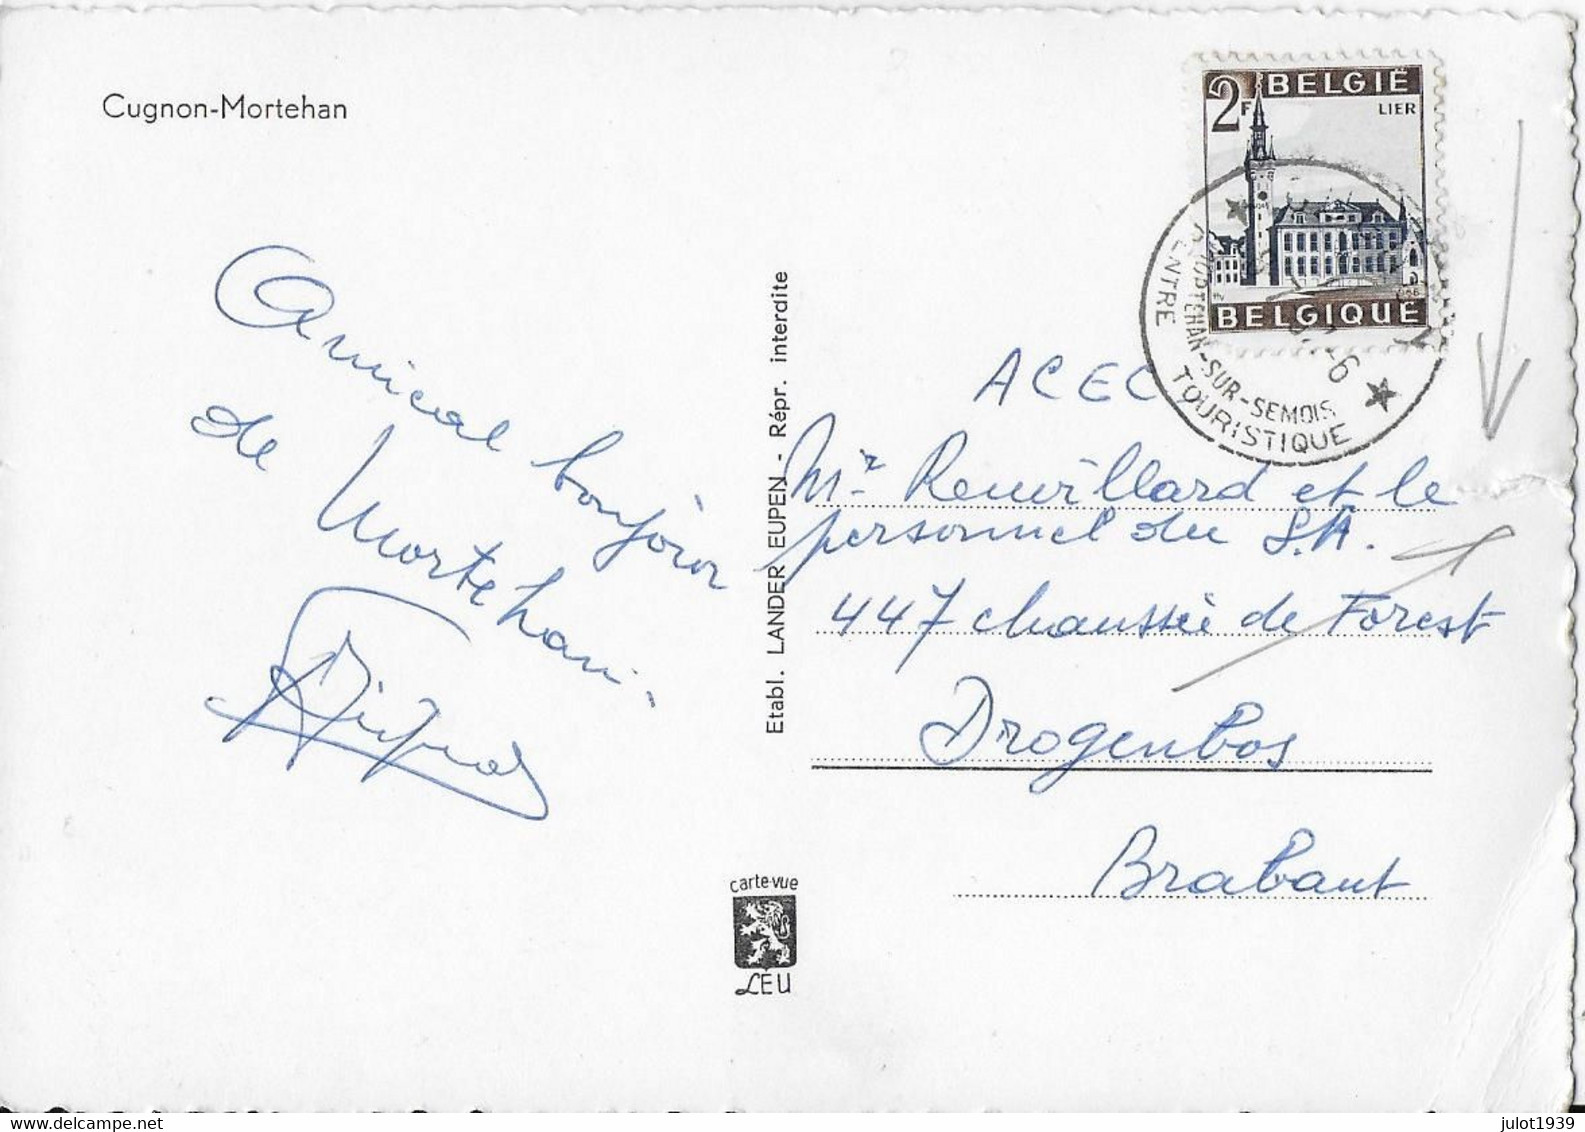 Cugnon-Mortehan
BELGIË
2F
LIER
BELGIQUE
MORTEHAN-SUR-SEMOIS
CENTRE TOURISTIQUE
Amical bonjour
de Mortehan.
Etabl. LANDER EUPEN - Répr. interdite
ACEC
Mr Renvillard et le
personnel du S.A.
447 chaussée de Forest
Drogenbos
Brabant
carte-vue
LEU
julot1939